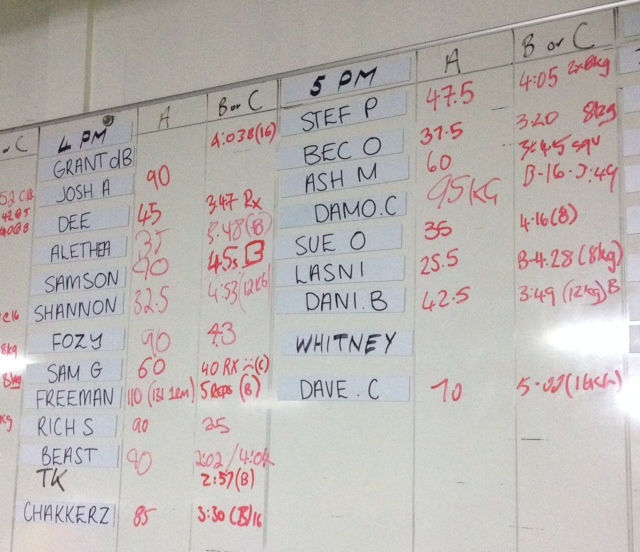 or C
4 PM A B or C 5 PM A B or C
GRANT dB 4:038(16)
JOSH A 90
DEE 45 3.47 Rx
ALETHEA 35 3.48(B)
SAMSON 90 45s B
SHANNON 32.5 4:53(12KG)
FOZY 90 43
SAM G 60 40 RX (C)
FREEMAN 110 (131 1RM) 5 REPS (B)
RICH S 90 25
BEAST 90 2:02 / 4:04
TK 2:57(B)
CHAKKERZ 85 3:30 (B)/16
STEF P 47.5 4:05 2x8kg
BEC O 37.5 3.20 8kg
ASH M 60
DAMO.C 95KG B-16-3.49
SUE O 35 4.16(8)
LASNI 25.5 B-4.28 (8kg)
DANI.B 42.5 3:49 (12kg)B
WHITNEY
DAVE.C 70 5-00(16KG)
8kg
8kg
kg